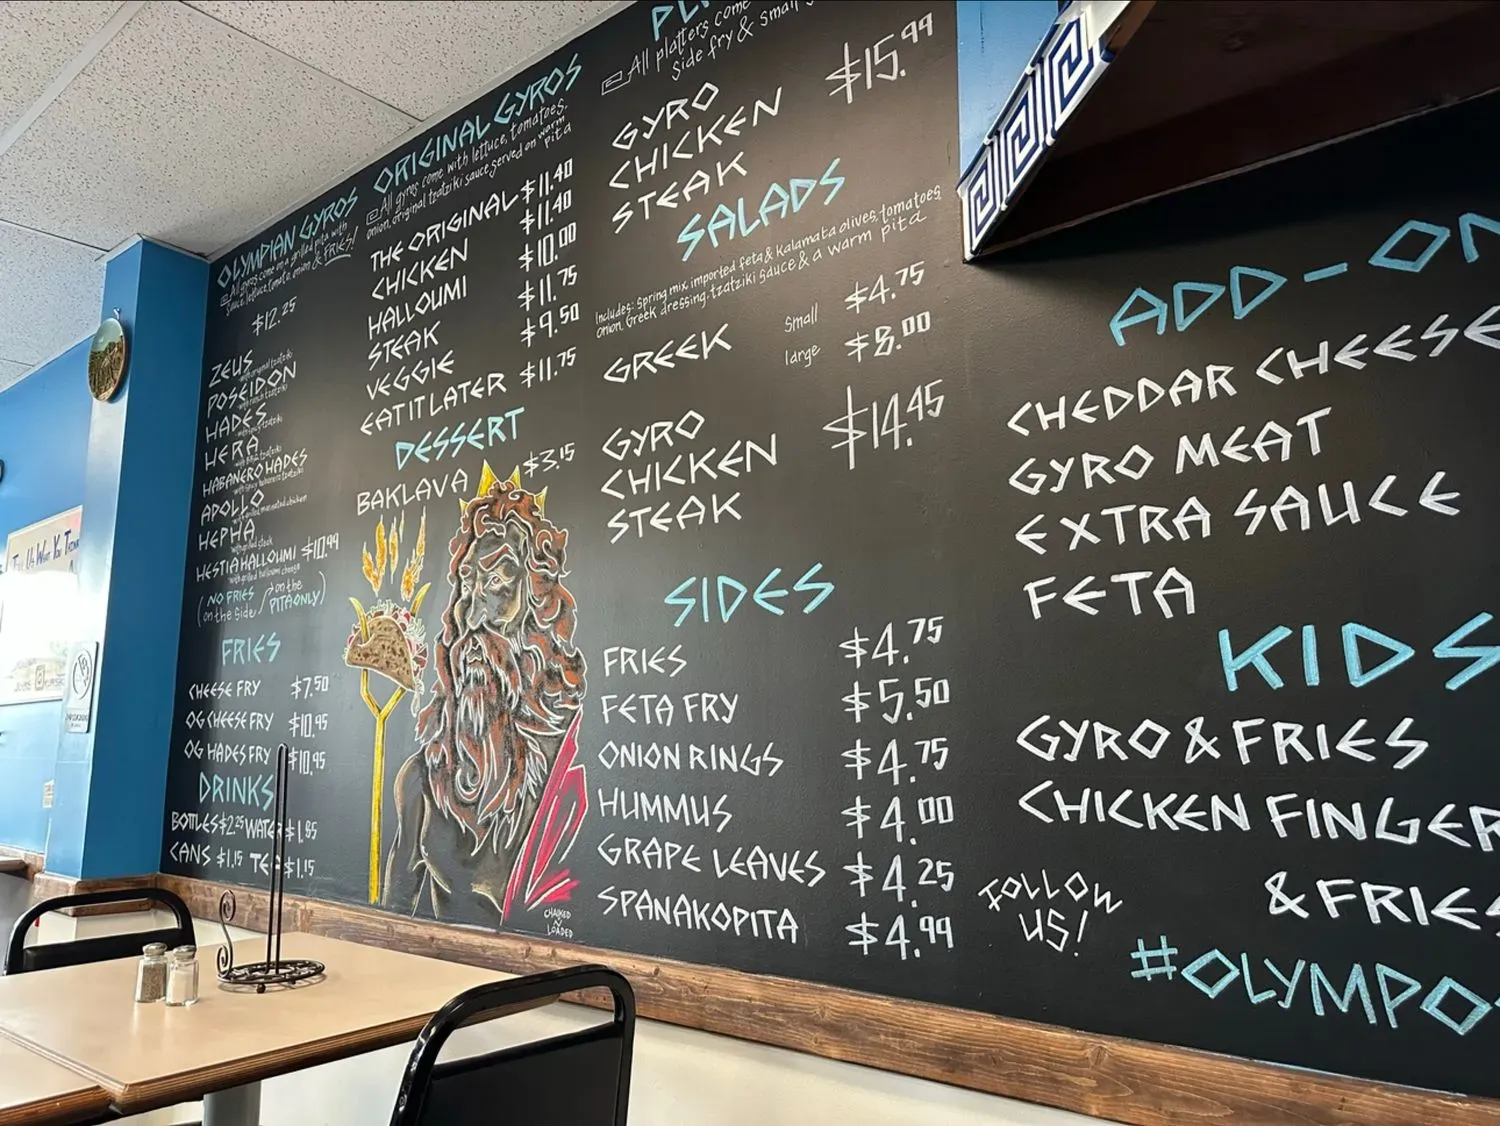 OLYMPIAN GYROS
All gyros come on a grilled pita with
sauce, lettuce, tomato, onion & FRIES!
$12.25
ZEUS
with original tzatziki
POSEIDON
with ranch tzatziki
HADES
with spicy tzatziki
HERA
HABANERO HADES
with spicy habanero tzatziki
APOLLO
with grilled marinated chicken
HEPHA
HESTIA HALLOUMI $10.99
with grilled halloumi cheese
(NO FRIES on the side / on the PITA ONLY)
FRIES
CHEESE FRY $7.50
OG CHEESE FRY $10.95
OG HADES FRY $10.95
DRINKS
BOTTLES $2.25 WATER $1.85
CANS $1.15 TEA $1.15
ORIGINAL GYROS
All gyros come with lettuce, tomatoes,
onion, original tzatziki sauce served on warm
pita
THE ORIGINAL $11.40
CHICKEN $11.40
HALLOUMI $10.00
STEAK $11.75
VEGGIE $9.50
EAT IT LATER $11.75
DESSERT
BAKLAVA $3.15
CHALKED
N
LOADED
All platters come
side fry & small
GYRO $15.99
CHICKEN
STEAK
SALADS
Includes: Spring mix, imported feta & kalamata olives, tomatoes,
onion, Greek dressing, tzatziki sauce & a warm pita
GREEK small $4.75
large $8.00
GYRO $14.45
CHICKEN
STEAK
SIDES
FRIES $4.75
FETA FRY $5.50
ONION RINGS $4.75
HUMMUS $4.00
GRAPE LEAVES $4.25
SPANAKOPITA $4.99
ADD-ON
CHEDDAR CHEESE
GYRO MEAT
EXTRA SAUCE
FETA
KIDS
GYRO & FRIES
CHICKEN FINGER
& FRIES
FOLLOW
US!
#OLYMPO